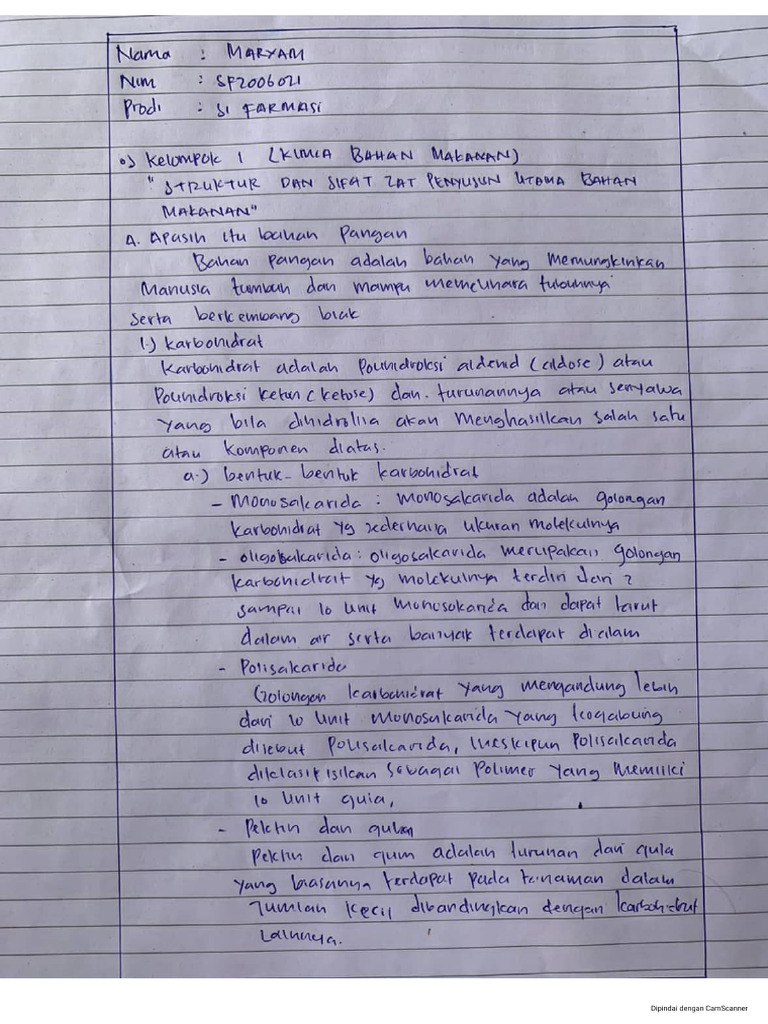 Nama : MARYAM
Nim : SF2006021
Prodi : S1 FARMASI
o) Kelompok 1 (KIMIA BAHAN MAKANAN)
"STRUKTUR DAN SIFAT ZAT PENYUSUN UTAMA BAHAN
MAKANAN"
A. Apasih itu bahan Pangan
Bahan pangan adalah bahan yang memungkinkan
Manusia tumbuh dan mampu memelihara tubuhnya
serta berkembang biak
1.) Karbohidrat
Karbohidrat adalah Polihidroksi aldehid (aldose) atau
Polihidroksi keton (ketose) dan turunannya atau senyawa
yang bila dihidrolisa akan menghasilkan salah satu
atau komponen diatas.
a.) bentuk-bentuk karbohidrat
- Monosakarida : monosakarida adalah golongan
karbohidrat yg sederhana ukuran molekulnya
- oligosakarida : oligosakarida merupakan golongan
karbohidrat yg molekulnya terdiri dari 2
sampai 10 unit monosakarida dan dapat larut
dalam air serta banyak terdapat di alam
- Polisakarida
Golongan karbohidrat yang mengandung lebih
dari 10 unit monosakarida yang
disebut Polisakarida, meskipun Polisakarida
diklasifisilkan sebagai Polimer yang memiliki
10 unit gula,
- Pektin dan
Pektin dan gum adalah turunan dari gula
yang biasanya terdapat pada tanaman dalam
Jumlah kecil dibandingkan dengan karbohidrat
lainnya.
Dipindai dengan CamScanner